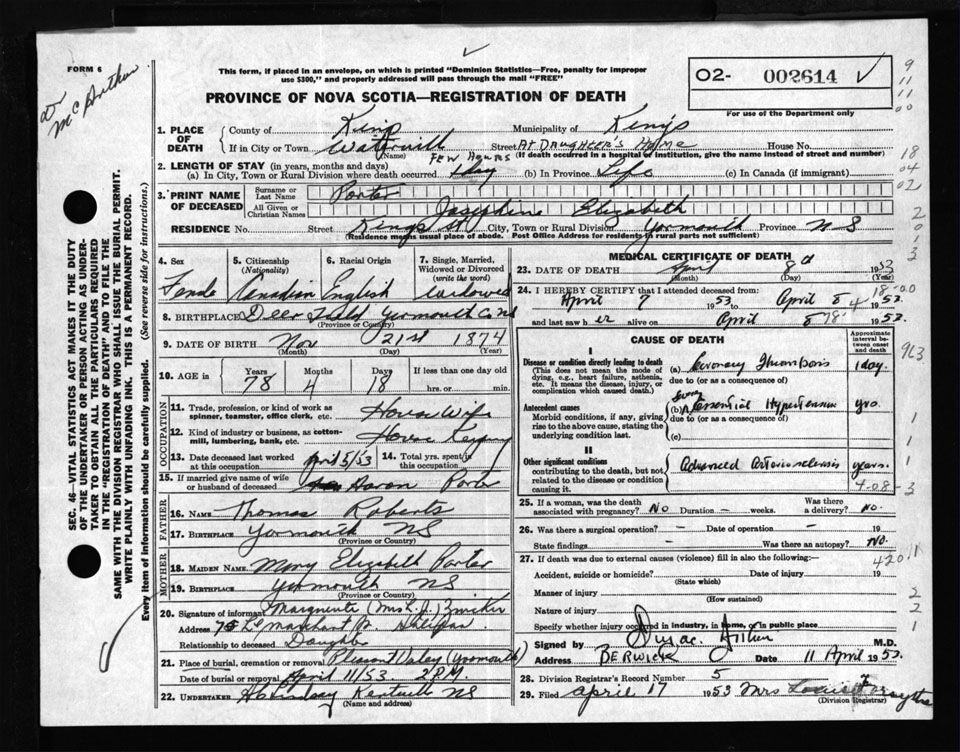 FORM 6
Dr McArthur
This form, if placed in an envelope, on which is printed "Dominion Statistics—Free, penalty for improper
use $300," and properly addressed will pass through the mail "FREE"
O2- 002614 ✓
For use of the Department only
PROVINCE OF NOVA SCOTIA—REGISTRATION OF DEATH
SEC. 46—VITAL STATISTICS ACT MAKES IT THE DUTY
OF THE UNDERTAKER OR PERSON ACTING AS UNDER-
TAKER TO OBTAIN ALL THE PARTICULARS REQUIRED
IN THE "REGISTRATION OF DEATH" AND TO FILE THE
SAME WITH THE DIVISION REGISTRAR WHO SHALL ISSUE THE BURIAL PERMIT.
WRITE PLAINLY WITH UNFADING INK. THIS IS A PERMANENT RECORD.
Every item of information should be carefully supplied. (See reverse side for instructions.)
1. PLACE OF DEATH County of Kings Municipality of Kings
If in City or Town Waterville (Name) Street At Daughter's Home House No.
(If death occurred in a hospital or institution, give the name instead of street and number)
2. LENGTH OF STAY (in years, months and days) Few Hours
(a) In City, Town or Rural Division where death occurred 1 day (b) In Province Life (c) In Canada (if immigrant)
3. PRINT NAME OF DECEASED Surname or Last Name Porter
All Given or Christian Names Josephine Elizabeth
RESIDENCE No. Street Kings St City, Town or Rural Division Yarmouth Province N-S
(Residence means usual place of abode. Post Office Address for residents of rural parts not sufficient)
4. Sex Female
5. Citizenship (Nationality) Canadian
6. Racial Origin English
7. Single, Married, Widowed or Divorced (write the word) Widowed
8. BIRTHPLACE Deer Field Yarmouth Co NS
(Province or Country)
9. DATE OF BIRTH Nov 21st 1874
(Month) (Day) (Year)
10. AGE in Years 78 Months 4 Days 18 If less than one day
hrs. or min.
OCCUPATION
11. Trade, profession, or kind of work as spinner, teamster, office clerk, etc. House Wife
12. Kind of industry or business, as cotton-mill, lumbering, bank, etc.
13. Date deceased last worked at this occupation April 5/53
14. Total yrs. spent in this occupation
15. If married give name of wife or husband of deceased Porter
FATHER
16. NAME Thomas Roberts
17. BIRTHPLACE Yarmouth NS
(Province or Country)
MOTHER
18. MAIDEN NAME Mary Elizabeth Porter
19. BIRTHPLACE Yarmouth NS
(Province or Country)
20. Signature of informant Marguerite (Mrs L. J.) Zwicker
Address 75 Le Marchant St. Halifax
Relationship to deceased Daughter
21. Place of burial, cremation or removal Pleasant Valley (Yarmouth)
Date of burial or removal April 11/53 2 P.M.
22. UNDERTAKER Kentville NS
(Name and address)
MEDICAL CERTIFICATE OF DEATH
23. DATE OF DEATH April 8 1953
(Month) (Day) (Year)
24. I HEREBY CERTIFY that I attended deceased from:
April 7 1953 to April 8 1953
and last saw her alive on April 8 1953.
CAUSE OF DEATH
Approximate interval between onset and death
I
Disease or condition directly leading to death
(This does not mean the mode of dying, e.g., heart failure, asthenia, etc. It means the disease, injury, or complication which caused death.)
(a) Coronary Thrombosis 1 day.
due to (or as a consequence of)
Antecedent causes
Morbid conditions, if any, giving rise to the above cause, stating the underlying condition last.
(b) Severe Essential Hypertension yrs.
due to (or as a consequence of)
(c)
II
Other significant conditions
contributing to the death, but not related to the disease or condition causing it.
Advanced arteriosclerosis years.
25. If a woman, was the death associated with pregnancy? No Duration – weeks. Was there a delivery? No.
26. Was there a surgical operation? – Date of operation – 19
State findings Was there an autopsy? No.
27. If death was due to external causes (violence) fill in also the following:
Accident, suicide or homicide? Date of injury 19
(State which)
Manner of injury
(How sustained)
Nature of injury
Specify whether injury occurred in industry, in home, or in public place
Signed by M.D.
Address BERWICK Date 11 April 1953.
28. Division Registrar's Record Number 5
29. Filed April 17 1953 Mrs Louise Forsythe
(Division Registrar)